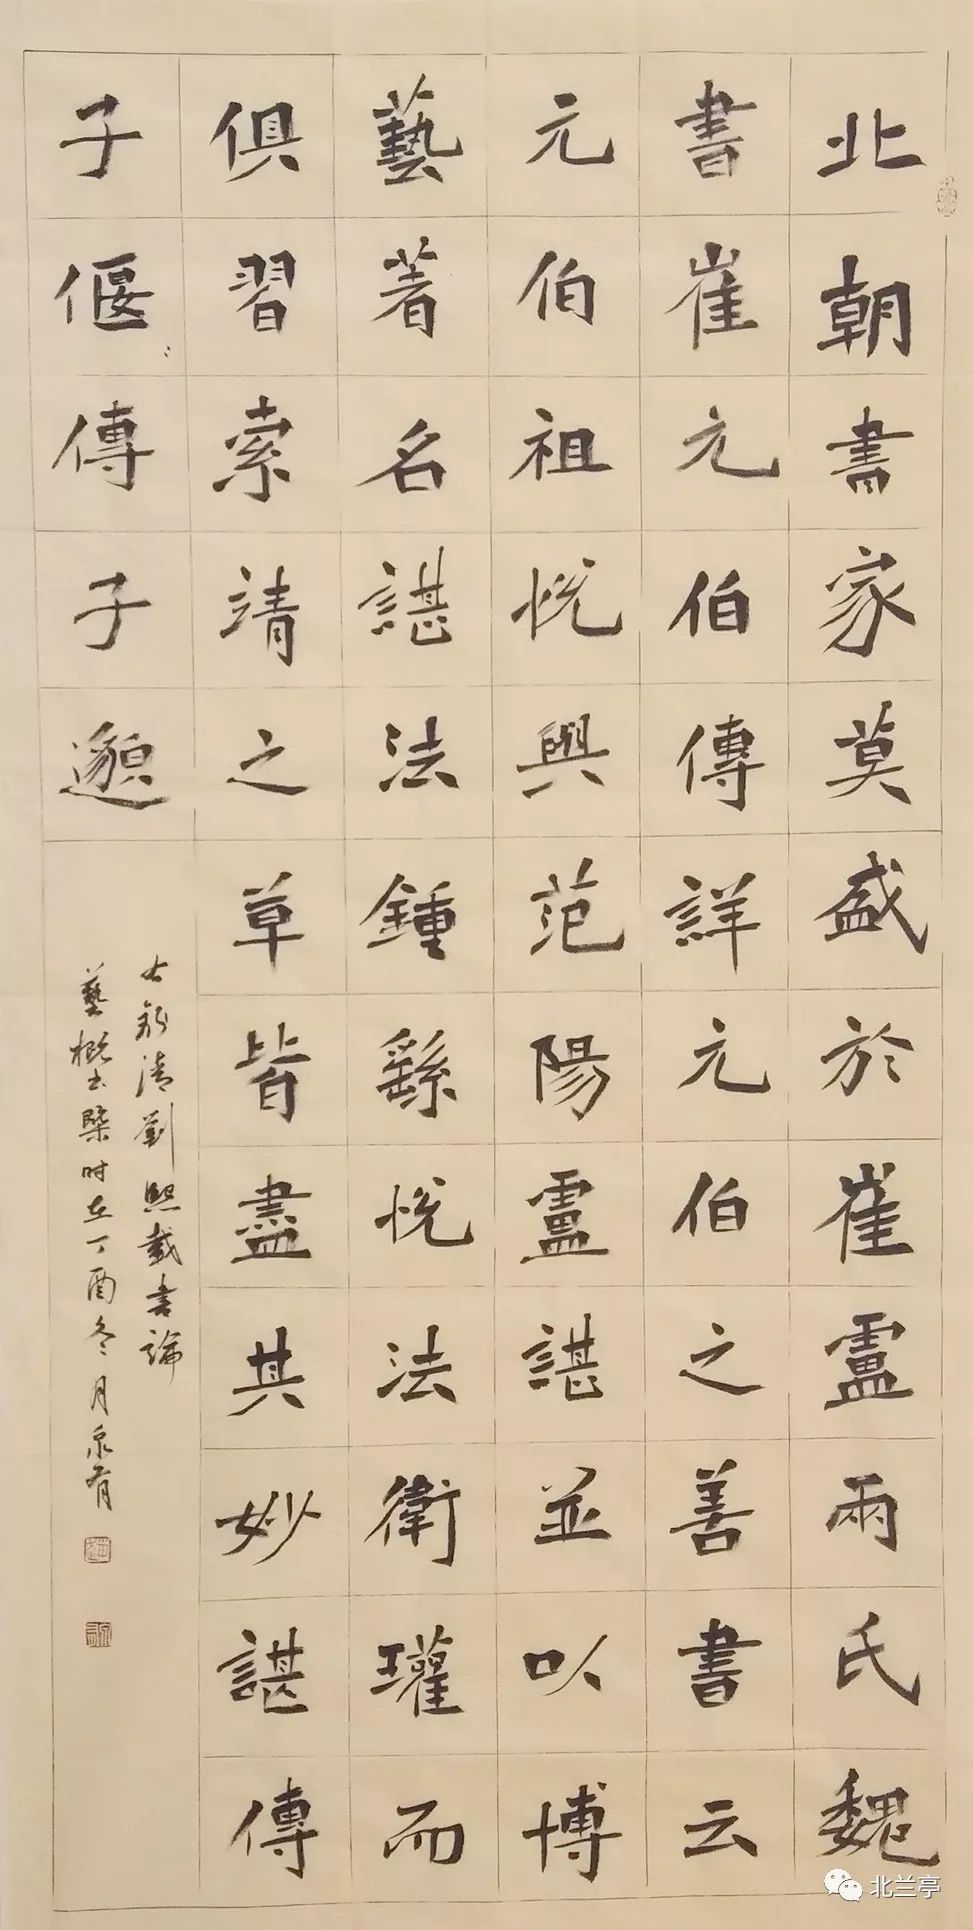 北朝書家莫盛於崔盧兩氏魏
書崔元伯傳詳元伯之善書云
元伯祖悅與范陽盧諶並以博
藝著名諶法鍾繇悅法衛瓘而
俱習索靖之草皆盡其妙諶傳
子偃〻傳子邈
右錄清劉熙載書論
藝概书槩时在丁酉冬月泉有
北兰亭